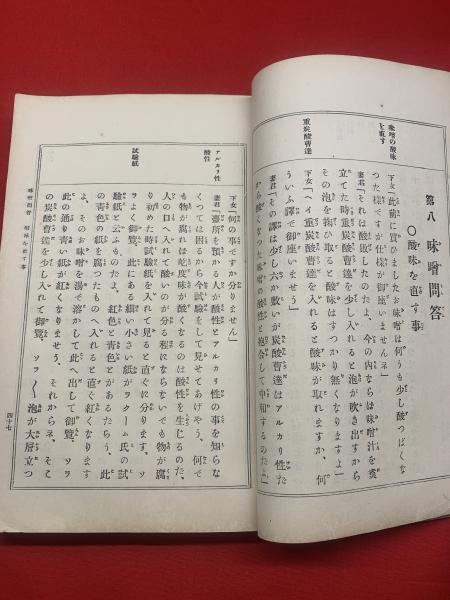 第八 味噌問答
〇酸味を直す事
味噌の酸味
を直す
下女「此前に買ひましたお味噌は何うも少し酸つぱくな
つた樣ですが仕樣が御座いませんネ」
妻君「それは酸敗したのたよ、今の内ならば味噌汁を煮
立てた時重炭酸曹達を少し入れると泡が吹き出すから
その泡を掬ひ取ると酸味はすつかり無くなりますよ」
重炭酸曹達
下女「ヘイ重炭酸曹達を入れると酸味が取れますか、何
ういふ譯で御座いませう」
妻君「その譯は少し六か敷いが炭酸曹達はアルカリ性た
から酸くなつた味噌の酸性と抱合して中和するのたよ」
下女「何の事ですか分りません」
アルカリ性
酸性
妻君「臺所を預かる人が酸性とアルカリ性の事を知らな
くつては困るから今試驗をして見せてあげやう、何で
も物が腐れば屹度味が酸くなるのは酸性を生じるのた、
人の口へ入れて酸いのが分る程にならないでも物が腐
り初めた時試驗紙を入れて見ると直ぐに分ります。ソ
試驗紙
ラよく御覽、此にある細い小さい紙がラクーム氏の試
驗紙と云ふものたよ。紅色と靑色とがあるたらう、此
の靑色の紙を腐つたものへ入れると直ぐ紅くなります
よ、そのお味噌を湯で溶かして此へ出して御覽、ソラ
此の通り靑い紙が紅くなりませう、それからネ、そこ
の炭酸曹達を少し入れて御覽、ソラ〱泡が大層立つ
味噌問答 酸味を直す事
四十七